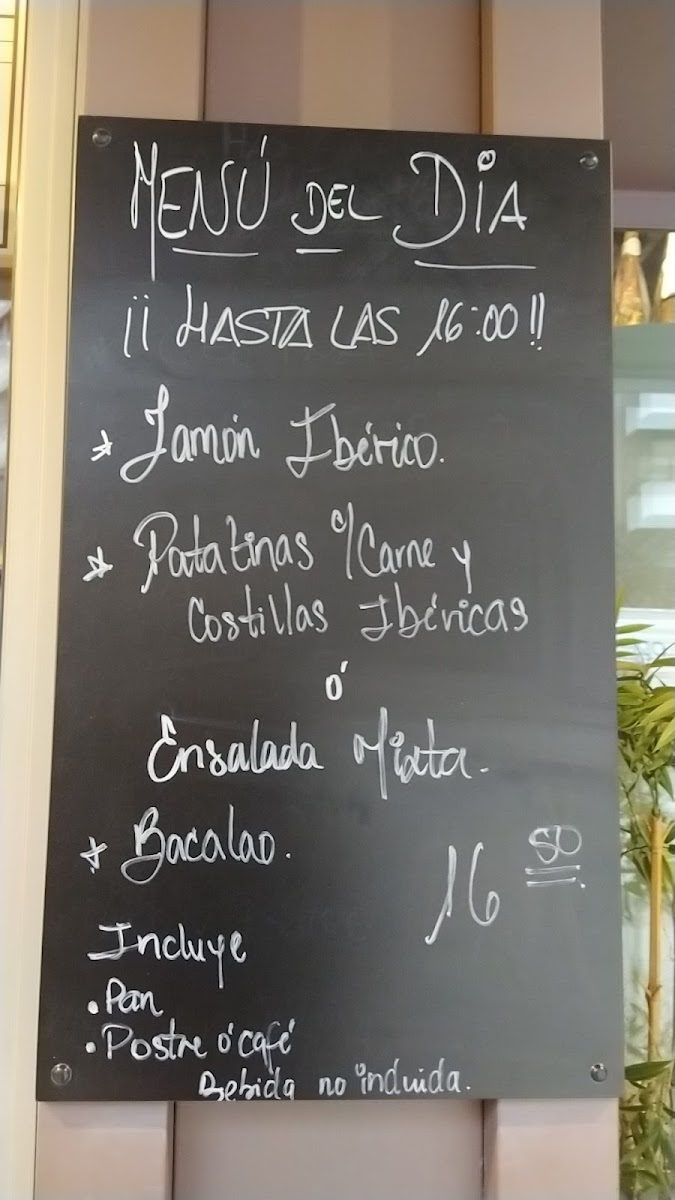 MENÚ DEL DÍA
¡¡ HASTA LAS 16:00 !!
* Jamón Ibérico.
* Patatinas c/ Carne y
Costillas Ibéricas
ó
Ensalada Mixta.
* Bacalao.
16 50
Incluye
• Pan
• Postre ó café
Bebida no incluida.